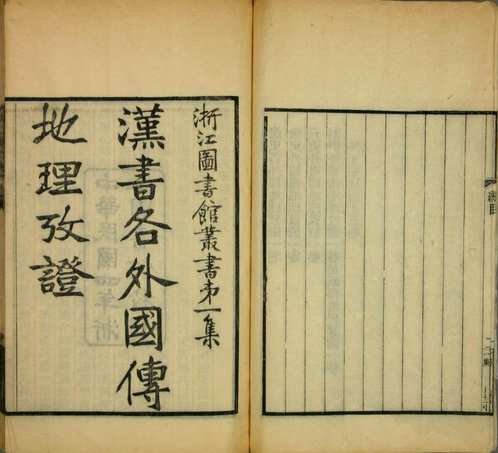 浙江圖書館叢書第一集
漢書各外國傳
地理攷證